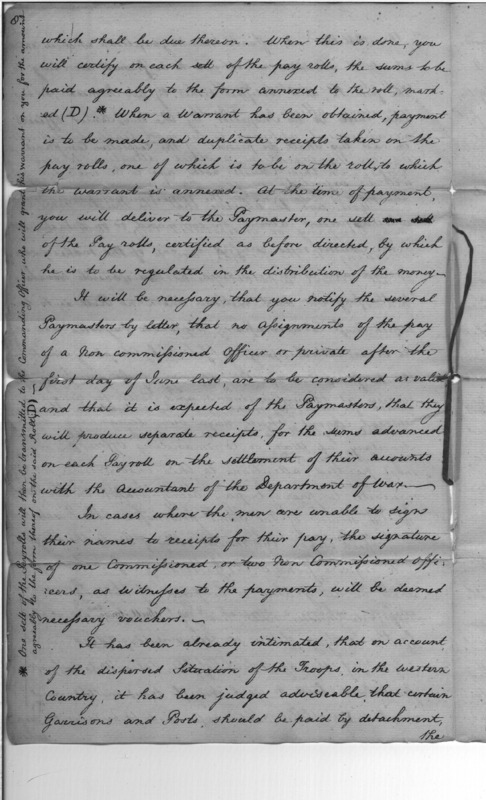 8.
which shall be due thereon. When this is done, you
will certify on each sett of the pay rolls, the sums to be
paid agreeably to the form annexed to the roll, mark-
ed (D).* When a Warrant has been obtained, payment
is to be made, and duplicate receipts taken on the
pay rolls, one of which is to be on the roll, to which
the warrant is annexed. At the time of payment,
you will deliver to the Paymaster, one sett
of the Pay rolls, certified as before directed, by which
he is to be regulated in the distribution of the money—
It will be necessary, that you notify the several
Paymasters by letter, that no assignments of the pay
of a Non commissioned Officer or private after the
first day of June last, are to be considered as valid
and that it is expected of the Paymasters, that they
will produce separate receipts, for the sums advanced
on each Payroll on the settlement of their accounts
with the Accountant of the Department of War.—
In cases where the men are unable to sign
their names to receipts for their pay, the signature
of one Commissioned, or two Non Commissioned Offi-
cers, as witnesses to the payments, will be deemed
necessary vouchers.—
It has been already intimated, that on account
of the dispersed Situation of the Troops, in the western
Country, it has been judged adviseable, that certain
Garrisons and Posts, should be paid by detachment,
the
* One sett of the Payrolls will then be transmitted to the Commanding Officer, who will grant his warrant on you for the amount
agreeably to the form thereof on the said Roll (D)—